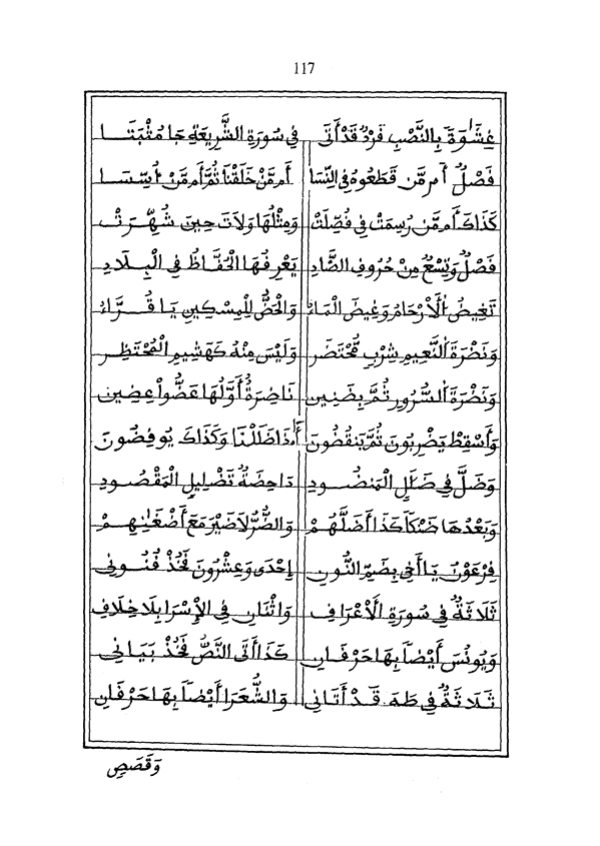 117
غِشَٰوَةً بِالنَّصْبِ فَرْدٌ قَدْ أَتَى فِي سُورَةِ الشَّرِيعَةِ جَا مُثْبَتَا
فَصْلٌ أَم مَّن قَطَعُوهُ فِي النِّسَا أَم مَّنْ خَلَقْنَا ثُمَّ أَم مَّنْ أُسِّسَا
كَذَاكَ أَم مَّن رُسِمَتْ فِي فُصِّلَتْ وَمِثْلُهَا وَلَاتَ حِينَ شُهِّرَتْ
فَصْلٌ وَتِسْعٌ مِنْ حُرُوفِ الضَّادِ يَعْرِفُهَا الْحُفَّاظُ فِي الْبِلَادِ
تَغِيضُ الْأَرْحَامُ وَغِيضَ الْمَاءُ وَالْحَضُّ لِلْمِسْكِينِ يَا قُرَّاءُ
وَنَضْرَةَ النَّعِيمِ شِرْبٍ مُّحْتَضَر وَلَيْسَ مِنْهُ كَهَشِيمِ الْمُحْتَظِر
وَنَضْرَةَ السُّرُورِ ثُمَّ بِضَنِينٍ نَاضِرَةٌ أَوَّلُهَا عَضُّوا عِضِين
وَأَسْقِطْ يَضْرِبُونَ ثُمَّ يَنقُضُونَ أَ۟ذَا ضَلَلْنَا وَكَذَاكَ يُوفِضُونَ
وَضَلَّ فِي ضَلَٰلٍ الْمَنضُودِ دَاحِضَةٌ تَضْلِيلٍ الْمَقْصُودِ
وَبَعْدُهَا ضَنكًا كَذَا أَضَلَّهُمْ وَالضُّرُّ لَا ضَيْرَ مَعَ أَضْغَٰنِهِمْ
فِرْعَوْنُ يَا أَخِي بِضَمِّ النُّونِ إِحْدَى وَعِشْرُونَ فَخُذْ فُنُونِي
ثَلَاثَةٌ فِي سُورَةِ الْأَعْرَافِ وَاثْنَانِ فِي الْإِسْرَا بِلَا خِلَافِ
وَيُونُسَ أَيْضًا بِهَا حَرْفَانِ كَذَا أَتَى النَّصُّ فَخُذْ بَيَانِي
ثَلَاثَةٌ فِي طَهَ قَدْ أَتَانِي وَالشُّعَرَا أَيْضًا بِهَا حَرْفَانِ
وَقَصَصٍ